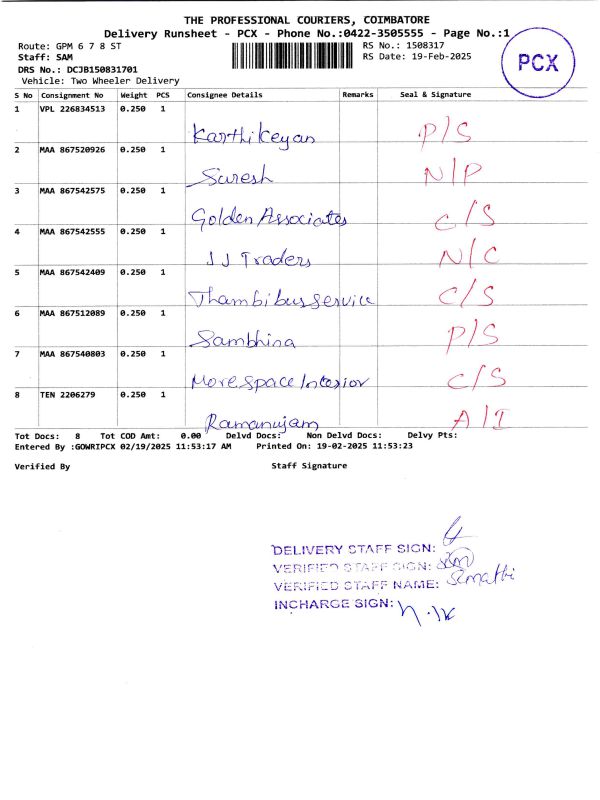 THE PROFESSIONAL COURIERS, COIMBATORE
Delivery Runsheet - PCX - Phone No.:0422-3505555 - Page No.:1
Route: GPM 6 7 8 ST RS No.: 1508317
Staff: SAM RS Date: 19-Feb-2025
DRS No.: DCJB150831701
Vehicle: Two Wheeler Delivery
PCX
S No Consignment No Weight PCS Consignee Details Remarks Seal & Signature
1 VPL 226834513 0.250 1
Karthikeyan P/S
2 MAA 867520926 0.250 1
Suresh N/P
3 MAA 867542575 0.250 1
Golden Associates C/S
4 MAA 867542555 0.250 1
JJ Traders N/C
5 MAA 867542409 0.250 1
Thambi bus service C/S
6 MAA 867512089 0.250 1
Sambhina P/S
7 MAA 867540803 0.250 1
More space Interior C/S
8 TEN 2206279 0.250 1
Ramanujam A/I
Tot Docs: 8 Tot COD Amt: 0.00 Delvd Docs: Non Delvd Docs: Delvy Pts:
Entered By :GOWRIPCX 02/19/2025 11:53:17 AM Printed On: 19-02-2025 11:53:23
Verified By Staff Signature
DELIVERY STAFF SIGN:
VERIFIED STAFF SIGN:
VERIFIED STAFF NAME:
INCHARGE SIGN: